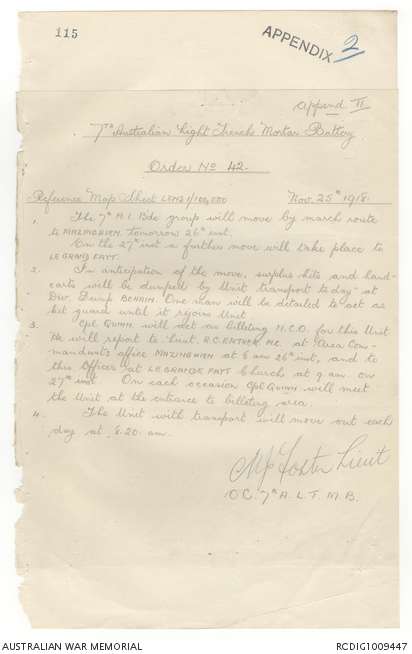 115
APPENDIX 2
Append II
7th Australian Light Trench Mortar Battery
Order No 42.
Reference Map Sheet LENS 1/100,000 Nov. 25th 1918.
1. The 7th A.I. Bde group will move by march route
to MAZINGHIEN, tomorrow 26th inst.
On the 27th inst a further move will take place to
LE GRAND FAYT.
2. In anticipation of the move, surplus kits and hand-
carts will be dumped by Unit transport to-day at
Div. Dump BOHAIN. One man will be detailed to act as
kit guard until it rejoins Unit.
3. Cpl QUINN will act as billeting N.C.O. for this Unit
He will report to Lieut. MC. at Area Com-
mandant's office MAZINGHIEN at 8 am 26th inst, and to
this Officer at LE GRANDE FAYT Church at 9 am. on
27th inst. On each occasion Cpl QUINN will meet
the Unit at the entrance to billeting area.
4. The Unit with transport will move out each
day at 8.20. am.
Foster Lieut
O.C. 7th A. L. T. M. B.
AUSTRALIAN WAR MEMORIAL
RCDIG1009447